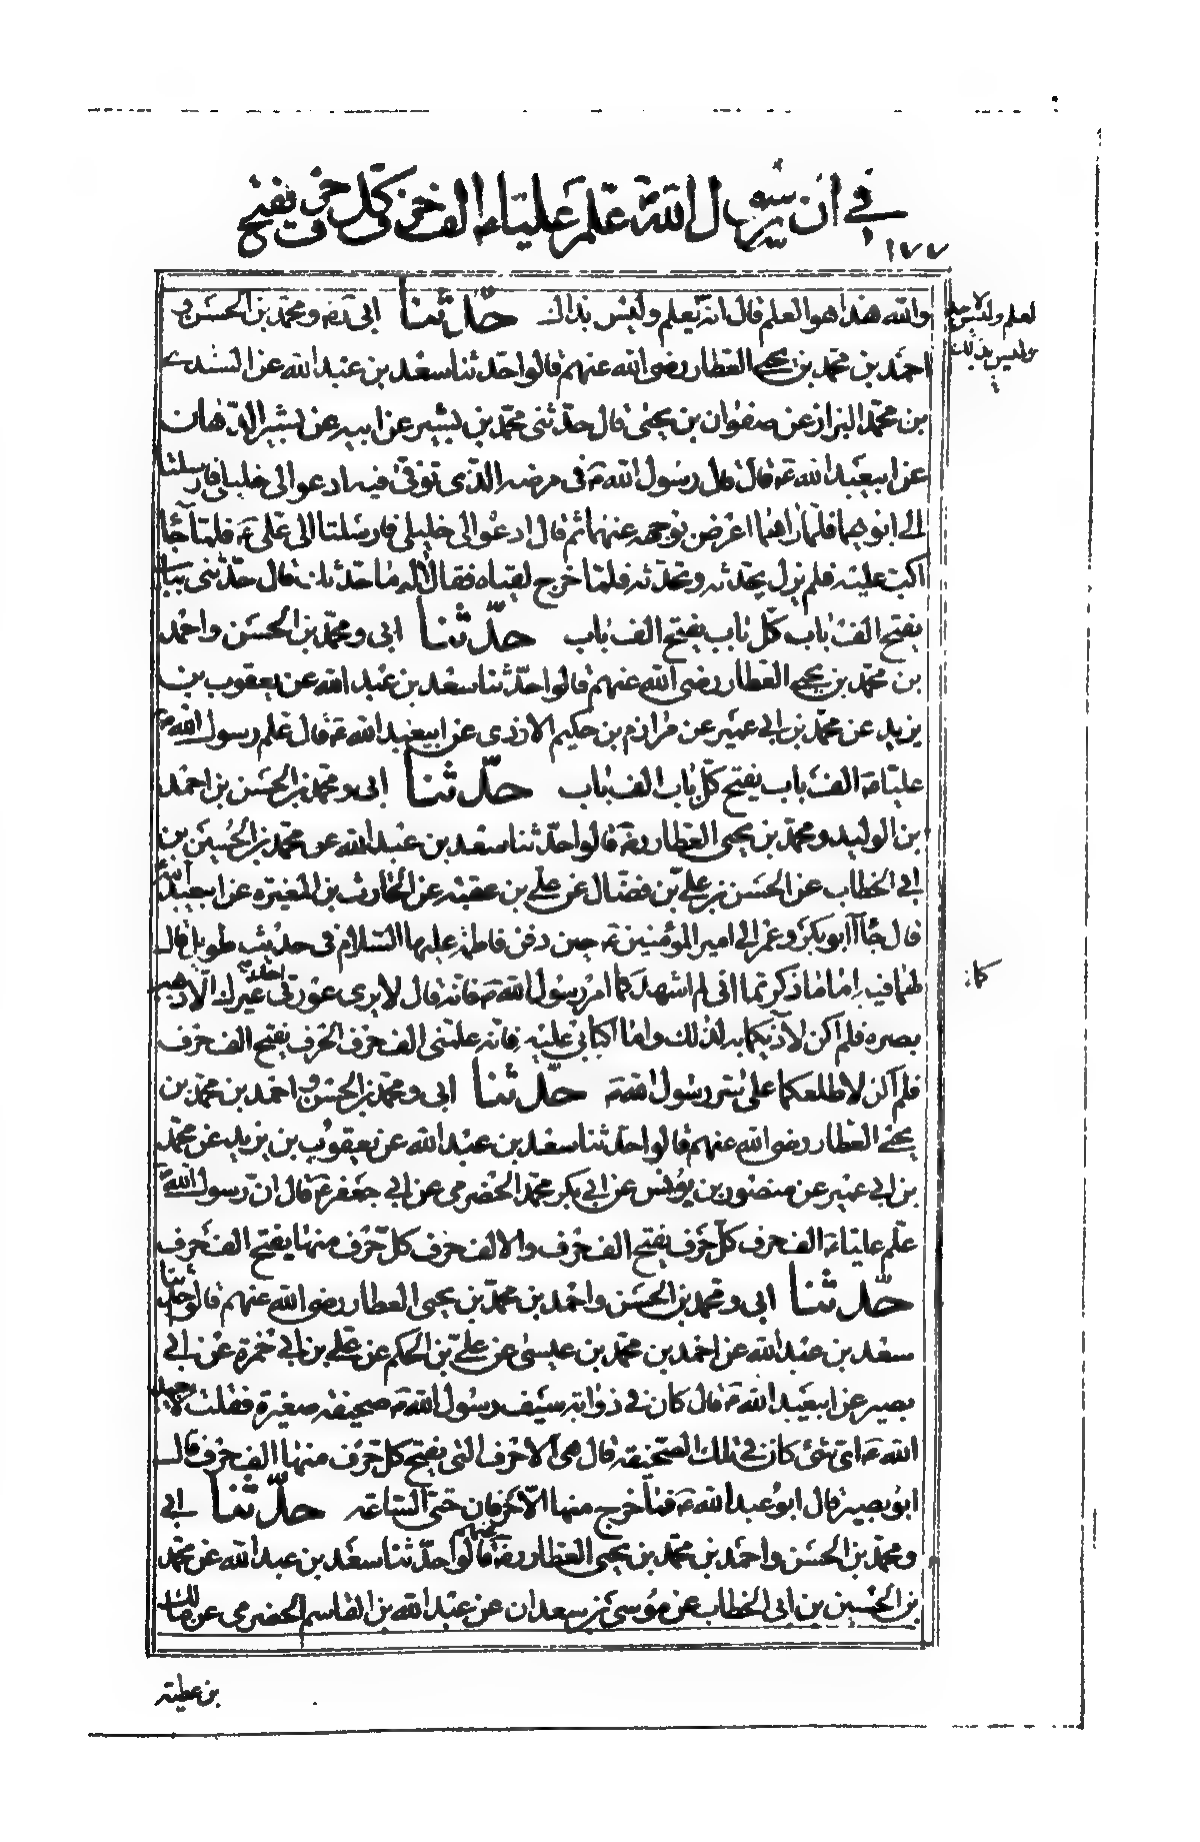 في ان رسول الله ص علم عليا ع الف حرف كل حرف يفتح
١٧٧
والله هذا هو العلم قال انه يعلم وليس بذاك حدثنا ابى ره و محمد بن الحسن و
احمد بن محمد بن يحيى العطار رضى الله عنهم قالوا حدثنا سعد بن عبد الله عن السندى
بن محمد البزاز عن صفوان بن يحيى قال حدثنى محمد بن بشير عن ابيه عن بشير الدهان
عن ابيعبد الله ع قال قال رسول الله ص فى مرضه الذى توفى فيه ادعوا لى خليلى فارسلتا
الى ابويهما فلما راهما اعرض بوجهه عنهما ثم قال ادعوا لى خليلى فارسلتا الى على ع فلما جاء
اكب عليه فلم يزل يحدثه و يحدثه فلما خرج لقياه فقالا له ما حدثك قال حدثنى بباب
يفتح الف باب كل باب يفتح الف باب حدثنا ابى و محمد بن الحسن و احمد
بن محمد بن يحيى العطار رضى الله عنهم قالوا حدثنا سعد بن عبد الله عن يعقوب بن
يزيد عن محمد بن ابى عمير عن مرازم بن حكيم الازدى عن ابيعبد الله ع قال علم رسول الله ص
عليا ع الف باب يفتح كل باب الف باب حدثنا ابى و محمد بن الحسن بن احمد
بن الوليد و محمد بن يحيى العطار ره قالوا حدثنا سعد بن عبد الله عن محمد بن الحسين بن
ابى الخطاب عن الحسن بن على بن فضال عن على بن عقبه عن الحارث بن المغيره عن ابيعبد الله
قال جاء ابو بكر و عمر الى امير المؤمنين ع حين دفن فاطمه عليها السلام فى حديث طويل قال
لهما فيه اما ما ذكرتما انى لم اشهدكما امر رسول الله ص فانه قال لا يرى عورتى احد غيرك الا ذهب
بصره فلم اكن لآذيكما به لذلك و اما اكبابى عليه فانه علمنى الف حرف الحرف يفتح الف حرف
فلم اكن لاطلعكما على سر رسول الله ص حدثنا ابى و محمد بن الحسن و احمد بن محمد بن
يحيى العطار رضى الله عنهم قالوا حدثنا سعد بن عبد الله عن يعقوب بن يزيد عن محمد
بن ابى عمير عن منصور بن يونس عن ابى بكر محمد الحضرمى عن ابى جعفر ع قال ان رسول الله ص
علم عليا ع الف حرف كل حرف يفتح الف حرف والالف حرف كل حرف منها يفتح الف حرف
حدثنا ابى و محمد بن الحسن و احمد بن محمد بن يحيى العطار رضى الله عنهم قالوا حدثنا
سعد بن عبد الله عن احمد بن محمد بن عيسى عن على بن الحكم عن على بن ابى حمزة عن ابى
بصير عن ابيعبد الله ع قال كان فى ذوابه سيف رسول الله ص صحيفه صغيرة فقلت لابيعبد
الله ع اى شئ كان فى تلك الصحيفه قال هى الاحرف التى يفتح كل حرف منها الف حرف قال
ابو بصير قال ابو عبد الله ع فما خرج منها الا حرفان حتى الساعه حدثنا ابى
و محمد بن الحسن و احمد بن محمد بن يحيى العطار رضى الله عنهم قالوا حدثنا سعد بن عبد الله عن محمد
بن الحسين بن ابى الخطاب عن موسى بن سعدان عن عبد الله بن القاسم الحضرمى عن مالك
بن عطيه